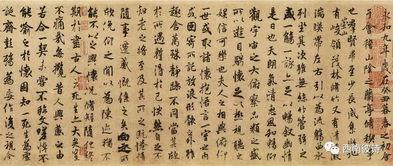 永和九年歲在癸丑暮春之初會
于會稽山陰之蘭亭脩稧事
也羣賢畢至少長咸集此地
有崇山峻領茂林脩竹又有清流激
湍暎帶左右引以為流觴曲水
列坐其次雖無絲竹管弦之
盛一觴一詠亦足以暢敘幽情
是日也天朗氣清惠風和暢仰
觀宇宙之大俯察品類之盛
所以遊目騁懷足以極視聽之
娛信可樂也夫人之相與俯仰
一世或取諸懷抱悟言一室之內
或因寄所託放浪形骸之外雖
趣舍萬殊靜躁不同當其欣
於所遇蹔得於己怏然自足不
知老之將至及其所之既惓情
隨事遷感慨係之矣向之所
欣俛仰之間以為陳迹猶不
能不以之興懷況脩短隨化終
期於盡古人云死生亦大矣豈
不痛哉每攬昔人興感之由
若合一契未嘗不臨文嗟悼不
能喻之於懷固知一死生為虛
誕齊彭殤為妄作後之視今
西南彼诗